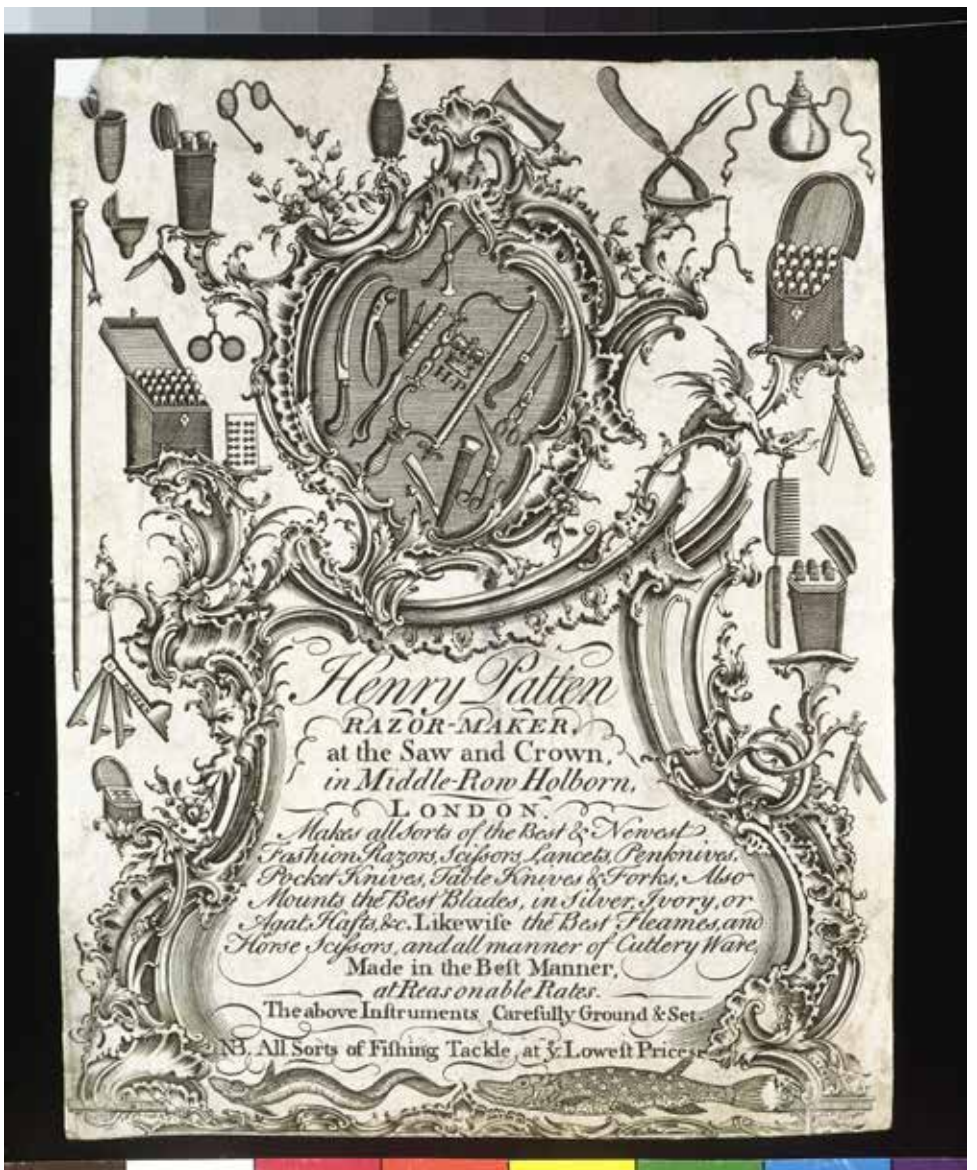 H·P
Henry Patten
RAZOR-MAKER,
at the Saw and Crown,
in Middle-Row Holborn,
LONDON.
Makes all Sorts of the Best & Newest
Fashion Razors, Sciſsors, Lancets, Penknives,
Pocket Knives, Table Knives & Forks, Also
Mounts the Best Blades, in Silver, Ivory, or
Agat Hafts, &c. Likewiſe the Best Fleames, and
Horse Sciſsors, and all manner of Cutlery Ware,
Made in the Beſt Manner,
at Reasonable Rates.
The above Inſtruments Carefully Ground & Set.
NB. All Sorts of Fiſhing Tackle, at yͤ. Loweſt Prices.